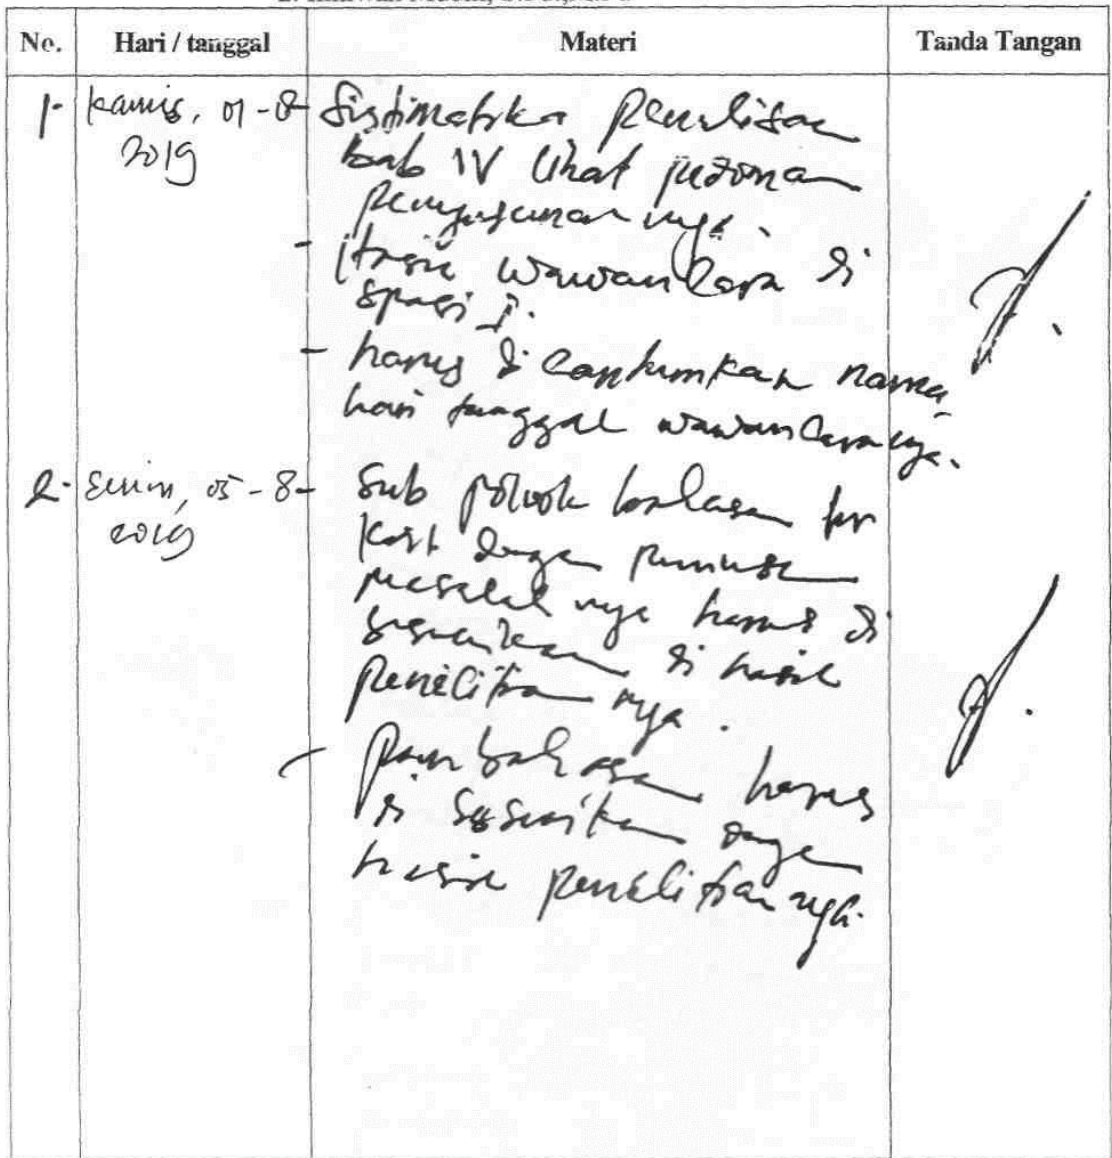 No. Hari / tanggal Materi Tanda Tangan
1. Kamis, 01-8-2019
Sistimatika Penulisan
bab IV lihat pedoman
penyusunannya.
- Hasil wawancara di
spasi 1.
- harus di cantumkan nama,
hari tanggal wawancaranya.
2. Senin, 05-8-2019
Sub pokok bahasan
dengan rumusan
masalahnya harus di
sesuaikan di hasil
penelitiannya.
- pembahasan harus
di sesuaikan dengan
hasil penelitiannya.